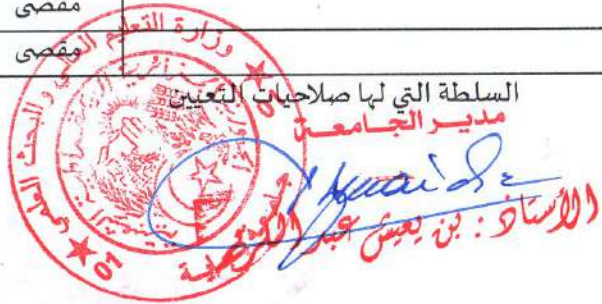 مقصى
مقصى
السلطة التي لها صلاحيات التعيين
مدير الجامعة
الأستاذ : بن يعيش عبد الكريم
وزارة التعليم العالي و البحث العلمي
01
01